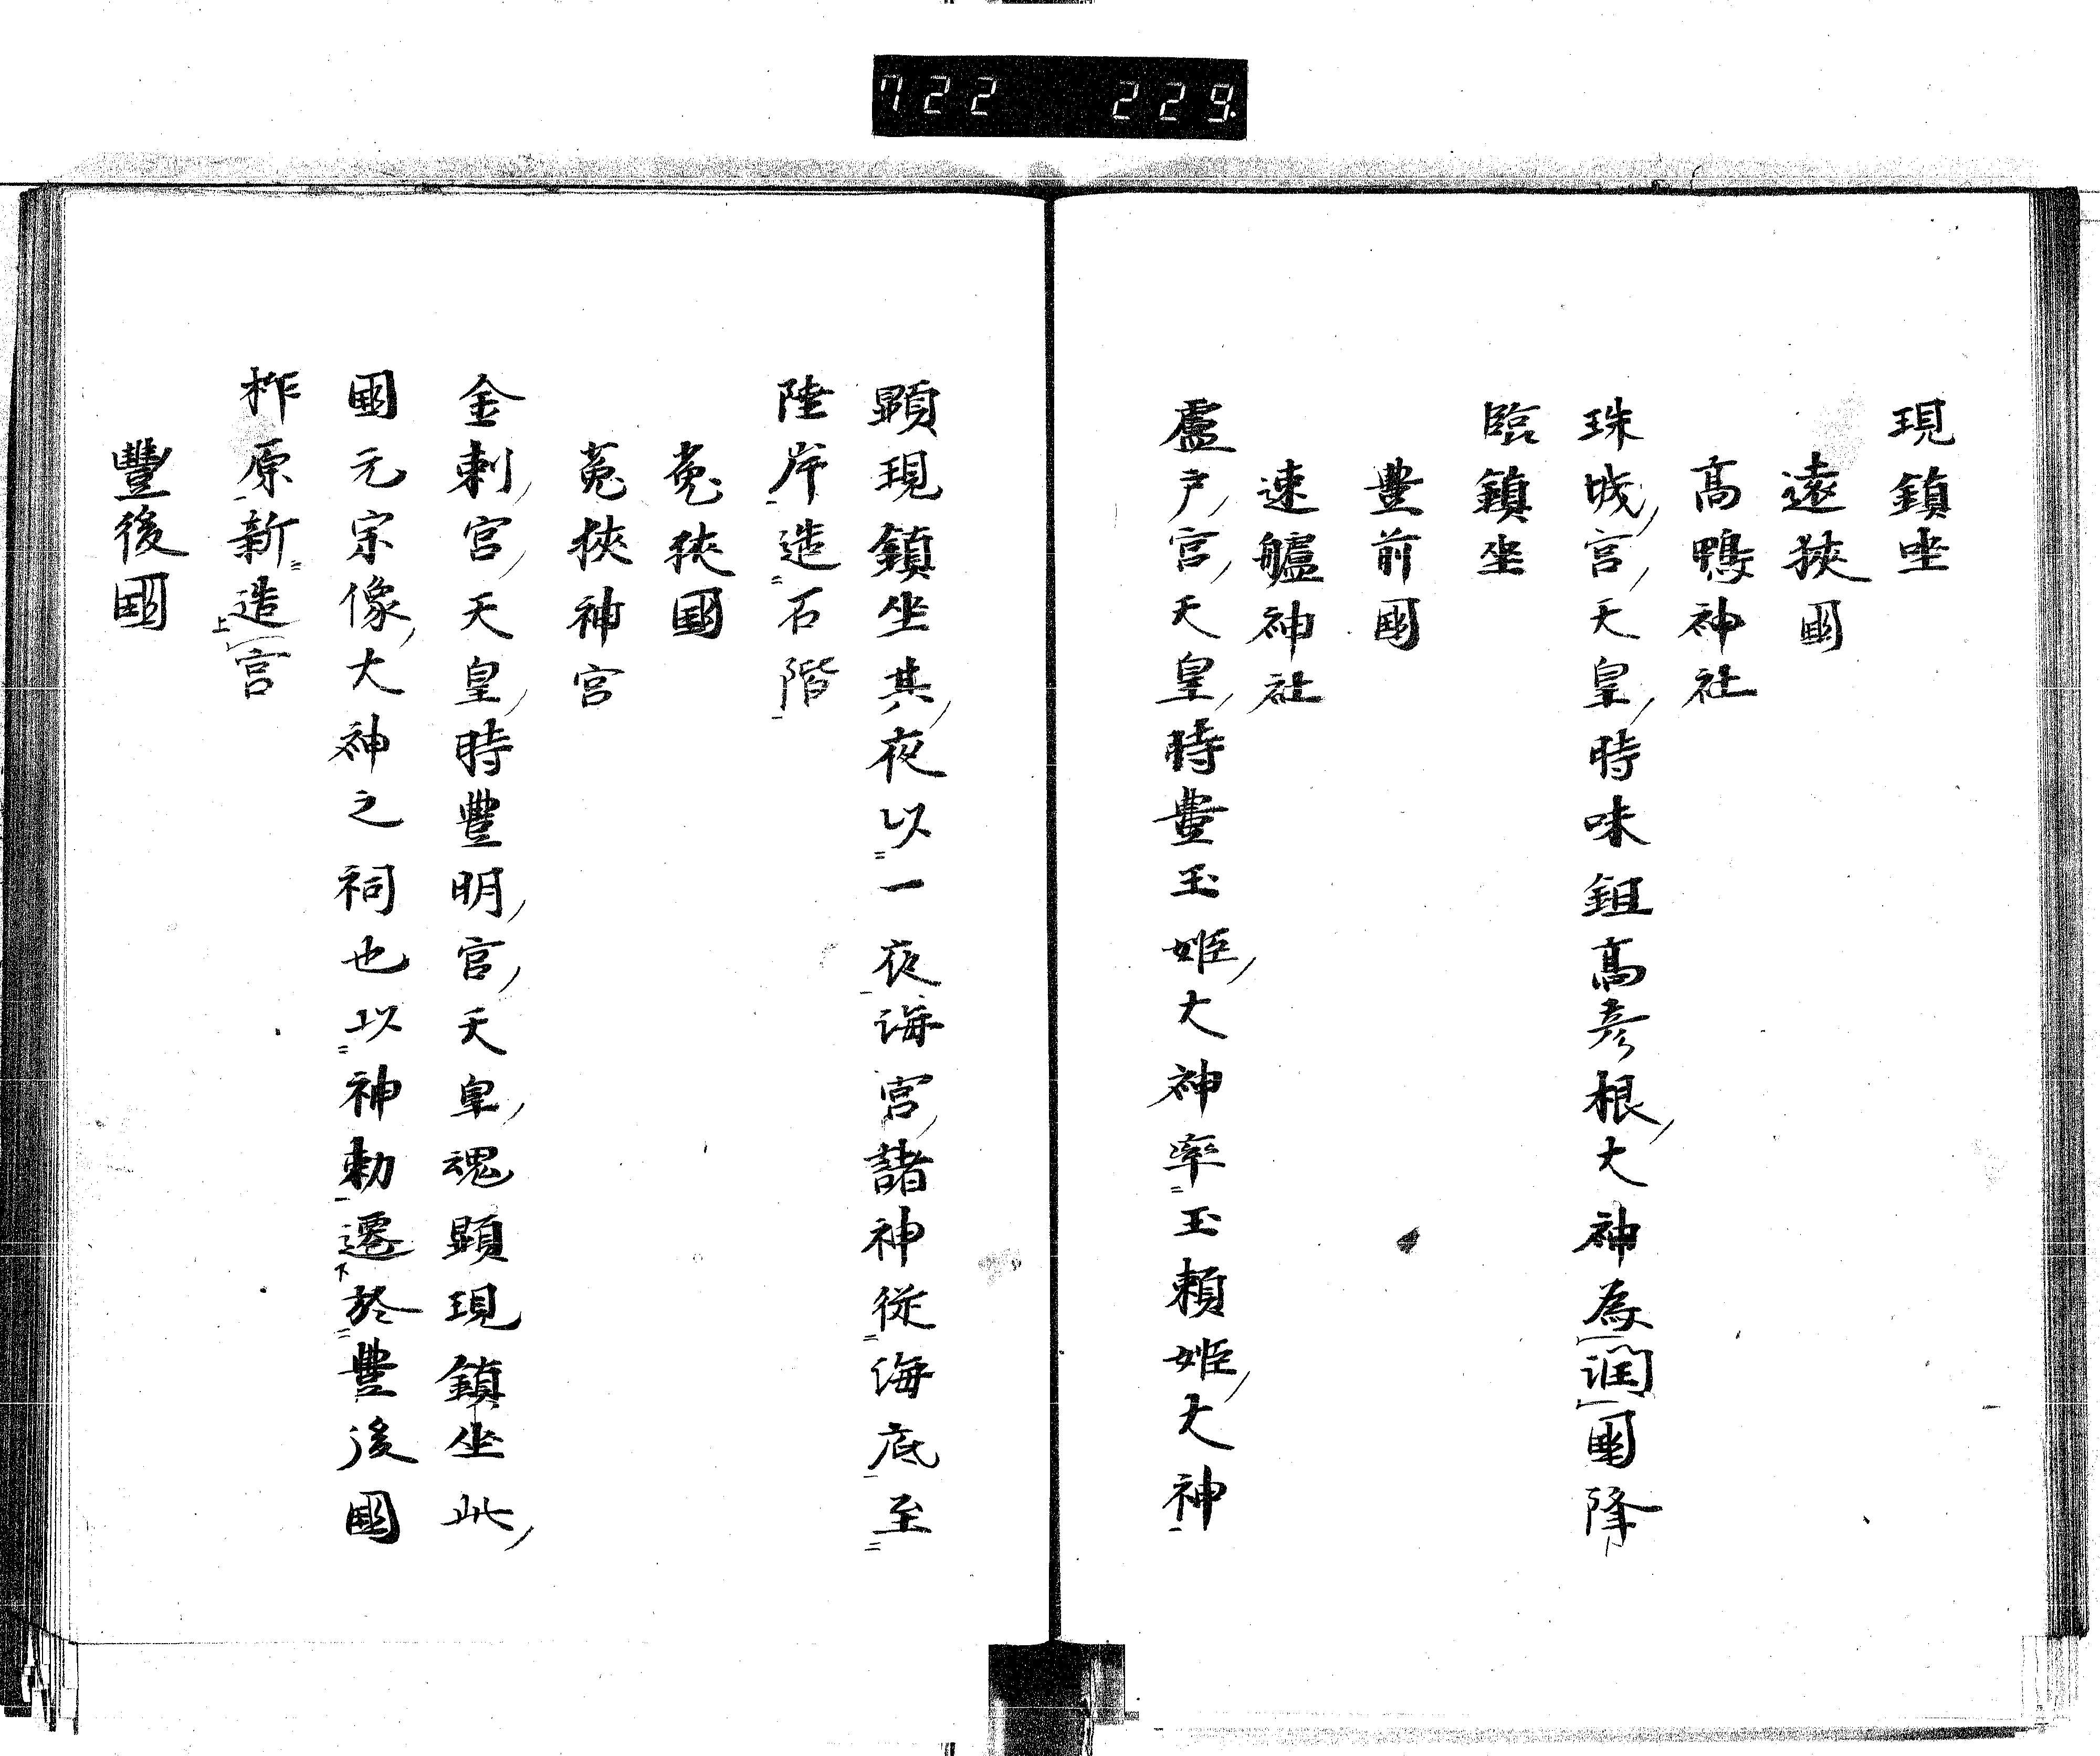 722 229
現鎮坐
遠狹國
高鴨神社
珠城宮天皇時味鉏高彦根大神為潤國降
臨鎮坐
豊前國
速艫神社
盧戸宮天皇時豊玉姫大神率玉頼姫大神
顕現鎮坐其夜以一夜海宮諸神従海底至
陸岸造石階
兎狹國
菟狹神宮
金刺宮天皇時豐明宮天皇魂顕現鎮坐此
國元宗像大神之祠也以神勅遷於豐後國
柞原新造宮
豐後國